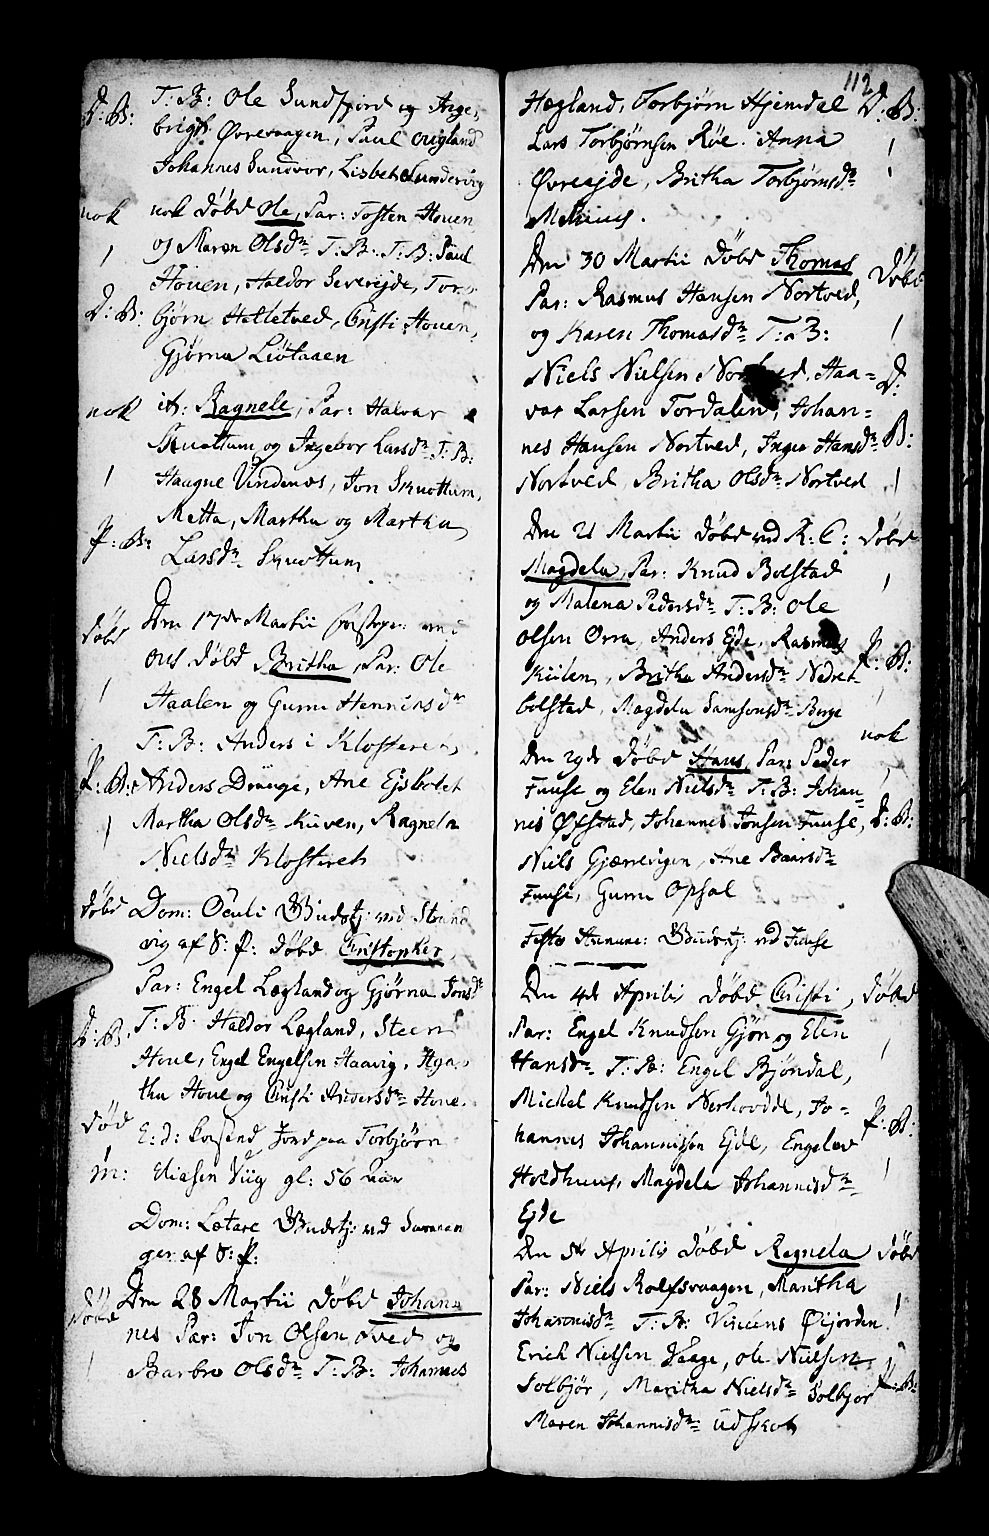 D: B: T: B: Ole Sundfjord og Inge-
brigt Øvrevaagen, Paul
Johannes Sundvor, Lisbet Sundervig
nok nok Døbd Ole, Par: Tosten Houen
og Maren Olsdr. T: B: T: B: Paul
Houen, Haldor Severeijde, Tor-
D: B: bjørn Helletved, Cristi Houen,
Gjørna Liøtaaen
nok it: Ragnele, Par: Halvar
Skuottum og Ingebor Larsdr. T: B:
Haagne Vindenes, Jon Skuottum,
Metta, Martha og Martha
P: B: Larsdr. Skuottum
Døbd Den 17de Martii
ons Døbd Britha, Par: Ole
Haalen og Guru Henrinsdr
T: B: Anders i Klosteret,
P: B: Anders Drange, Ane Ejsbotet
Martha Olsdr. Kuven, Ragnela
Nielsdr. Klosteret
Døbd Dom: Oculi Gudstj: ved Strand
vig af S: P: Døbd Cristopher,
Par: Engel Lægland og Gjørna Jonsdr
D: B: T: B: Haldor Lægland, Steen
Houe, Engel Engelsen Haavig, Aga-
tha Houe og Cristi Andersdr. Houe.
Død E: d: Jord paa Torbjørn
m: Eliasen Viig gl: 56 aar
Dom: Lætare Gudstj: ved Suaaen
ger af S: P:
Døbd Den 28 Martii Døbd Johan
nes Par: Jon Olsen Øved og
Barbro Olsdr. T: B: Johannes
112
Hægland, Torbjørn Hjemdal D: B:
Lars Torbjørnsen Røe. Anna
Øvreejde, Britha Torbjørnsdr.
Melhuus.
Den 30 Martii Døbd Thomas Døbd
Par: Rasmus Hansen Nortved,
og Karen Thomasdr. T: B:
Niels Nielsen Nortved, Haa- D:
var Larsen Tordalen, Johan-
nes Hansen Nortved, Inger Hansdr. B:
Nortved, Britha Olsdr. Nortved
Den 21 Martii Døbd ved K: C: Døbd
Magdela, Par: Knud Bolstad
og Malena Pedersdr. T: B: Ole
Olsen Ørra, Anders Ejde, Rasmus P: B:
Kiilen, Britha Andersdr. Nedret
bolstad, Magdela Samsonsdr. Berge
nok
Den 29de Døbd Hans Par: Peder
Fuuse og Elen Nielsdr. T: B: Johan-
nes Opstad, Johannes Jonsen Fuuse, D: B:
Niels Gjærevigen, Ane Baarsdr.
Fuuse, Guru Opsal
Festo Annunc: Gudstj: ved Fuuse
Den 4de Aprilis Døbd Cristi, Døbd
Par: Engel Knudsen Gjøn og Elen
Hansdr. T: B: Engel Bjøndal,
Michel Knudsen Nerhovdde, Jo- P: B:
hannes Johannissen Ejde, Engelev
Holdhuus, Magdela Johannisdr.
Ejde
Den 5te Aprilis Døbd Ragnela Døbd
Par: Niels Rolfsvaagen, Maritha
Johannisdr. T: B: Vincens Øijorden
Erich Nielsen Vaage, ole Nielsen P: B:
Solbjør, Maritha Nielsdr. Solbjør
Maren Johannisdr. Udskot